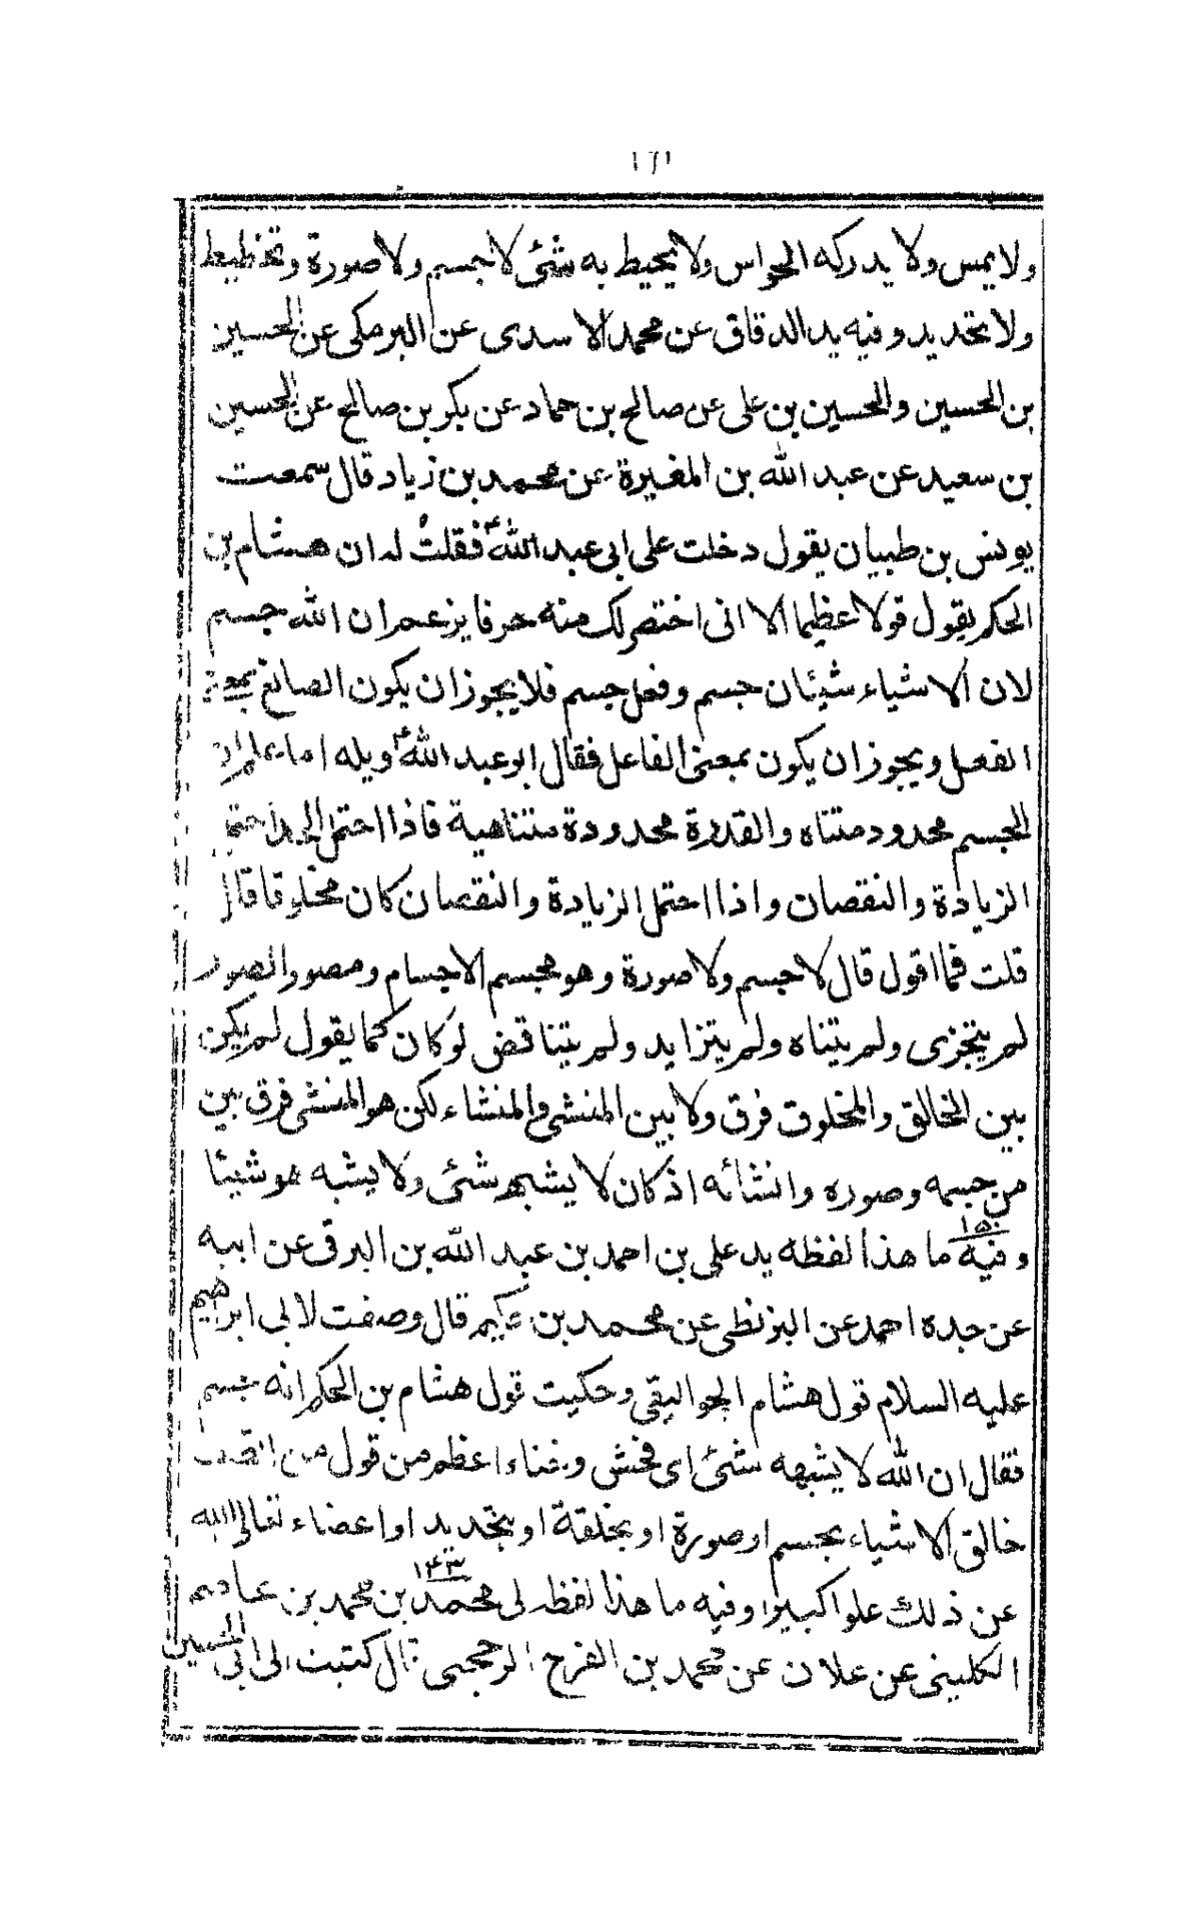 ١٦١
ولا يمس ولا يدركه الحواس ولا يحيط به شئ لا جسم ولا صورة وتخطيط
ولا تحديد وفيه يد الدقاق عن محمد الاسدى عن البرمكى عن الحسين
بن الحسين والحسين بن على عن صالح بن حماد عن بكر بن صالح عن الحسين
بن سعيد عن عبد الله بن المغيرة عن محمد بن زياد قال سمعت
يونس بن ظبيان يقول دخلت على ابى عبد اللهؑ فقلت له ان هشام بن
الحكم يقول قولا عظيما الا انى اختصر لك منه حرفا يزعم ان الله جسم
لان الاشياء شيئان جسم وفعل جسم فلا يجوز ان يكون الصانع بمعنى
الفعل ويجوز ان يكون بمعنى الفاعل فقال ابو عبد اللهؑ ويله اما علم ان
الجسم محدود متناه والقدرة محدودة متناهية فاذا احتمل الحد احتمل
الزيادة والنقصان واذا احتمل الزيادة والنقصان كان مخلوقا قال
قلت فما اقول قال لا جسم ولا صورة وهو مجسم الاجسام ومصور الصور
لم يتجزى ولم يتناه ولم يتزايد ولم يتناقض لو كان كما يقول لم يكن
بين الخالق والمخلوق فرق ولا بين المنشى والمنشاء لكن هو المنشى فرق بين
من جسمه وصوره وانشائه اذ كان لا يشبهه شئ ولا يشبه هو شيئا
وفيه ١٥٠ ما هذا لفظه يد على بن احمد بن عبد الله بن البرقى عن ابيه
عن جده احمد عن البزنطى عن محمد بن حكيم قال وصفت لابى ابراهيم
عليه السلام قول هشام الجواليقى وحكيت قول هشام بن الحكم انه جسم
فقال ان الله لا يشبهه شئ اى فحش وخناء اعظم من قول من يصف
خالق الاشياء بجسم او صورة او بخلقة او بتحديد او اعضاء تعالى الله
عن ذلك علوا كبيرا وفيه ما هذا لفظه لى ١٤٣ محمد بن محمد بن عاصم
الكلينى عن علان عن محمد بن الفرج الرحجى قال كتبت الى ابى الحسين